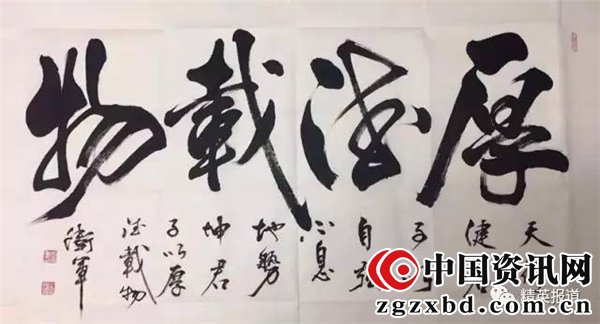 厚德載物
天行
健君
子
自强
不息
地勢
坤君
子以厚
德載物
衛軍
中国资讯网
zgzxbd.com.cn
精英报道